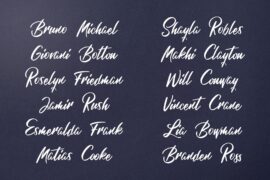 Bruno Michael
Giovani Bolton
Roselyn Friedman
Jamir Rush
Esmeralda Frank
Matias Cooke
Shayla Robles
Makhi Clayton
Will Conway
Vincent Crane
Lia Bowman
Branden Ross